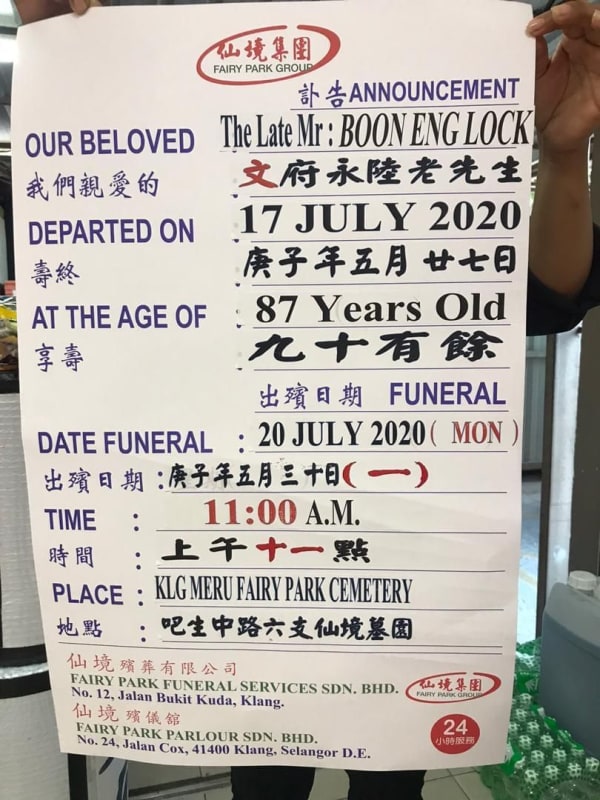 仙境集團
FAIRY PARK GROUP
訃告ANNOUNCEMENT
OUR BELOVED The Late Mr : BOON ENG LOCK
我們親愛的 : 文府永陸老先生
DEPARTED ON : 17 JULY 2020
壽終 : 庚子年五月廿七日
AT THE AGE OF : 87 Years Old
享壽 : 九十有餘
出殯日期 FUNERAL
DATE FUNERAL : 20 JULY 2020 ( MON )
出殯日期 : 庚子年五月三十日(一)
TIME : 11:00 A.M.
時間 : 上午十一點
PLACE : KLG MERU FAIRY PARK CEMETERY
地點 : 吧生中路六支仙境墓園
仙境殯葬有限公司
FAIRY PARK FUNERAL SERVICES SDN. BHD.
No. 12, Jalan Bukit Kuda, Klang.
仙境殯儀館
FAIRY PARK PARLOUR SDN. BHD.
No. 24, Jalan Cox, 41400 Klang, Selangor D.E.
仙境集團
FAIRY PARK GROUP
24
小時服務